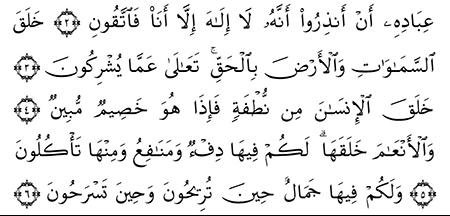 عِبَادِهِۦٓ أَنْ أَنذِرُوٓا۟ أَنَّهُۥ لَآ إِلَـٰهَ إِلَّآ أَنَا۠ فَٱتَّقُونِ ۝٢ خَلَقَ
ٱلسَّمَـٰوَٰتِ وَٱلْأَرْضَ بِٱلْحَقِّ ۚ تَعَـٰلَىٰ عَمَّا يُشْرِكُونَ ۝٣
خَلَقَ ٱلْإِنسَـٰنَ مِن نُّطْفَةٍ فَإِذَا هُوَ خَصِيمٌ مُّبِينٌ ۝٤
وَٱلْأَنْعَـٰمَ خَلَقَهَا ۗ لَكُمْ فِيهَا دِفْءٌ وَمَنَـٰفِعُ وَمِنْهَا تَأْكُلُونَ
۝٥ وَلَكُمْ فِيهَا جَمَالٌ حِينَ تُرِيحُونَ وَحِينَ تَسْرَحُونَ ۝٦